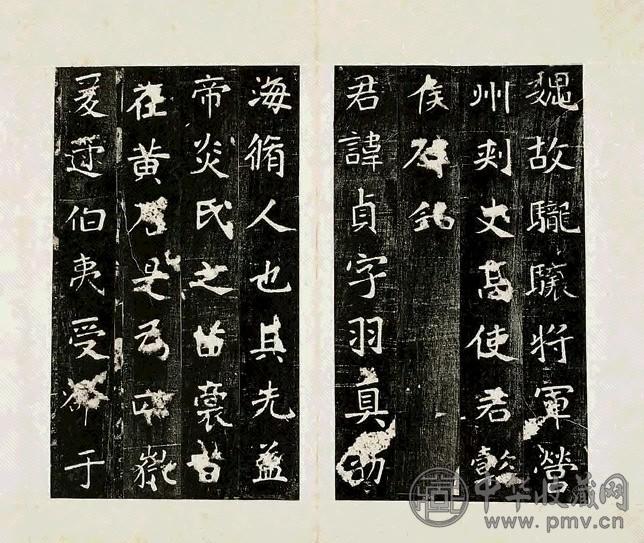 魏故䮾驤将軍營
州刺史高使君懿
侯碑銘
君諱貞字羽真勃
海脩人也其先盖
帝炎氏之苗裔昔
在黄唐是為四嶽
爰逮伯夷受命于
中华收藏网
www.pmv.cn